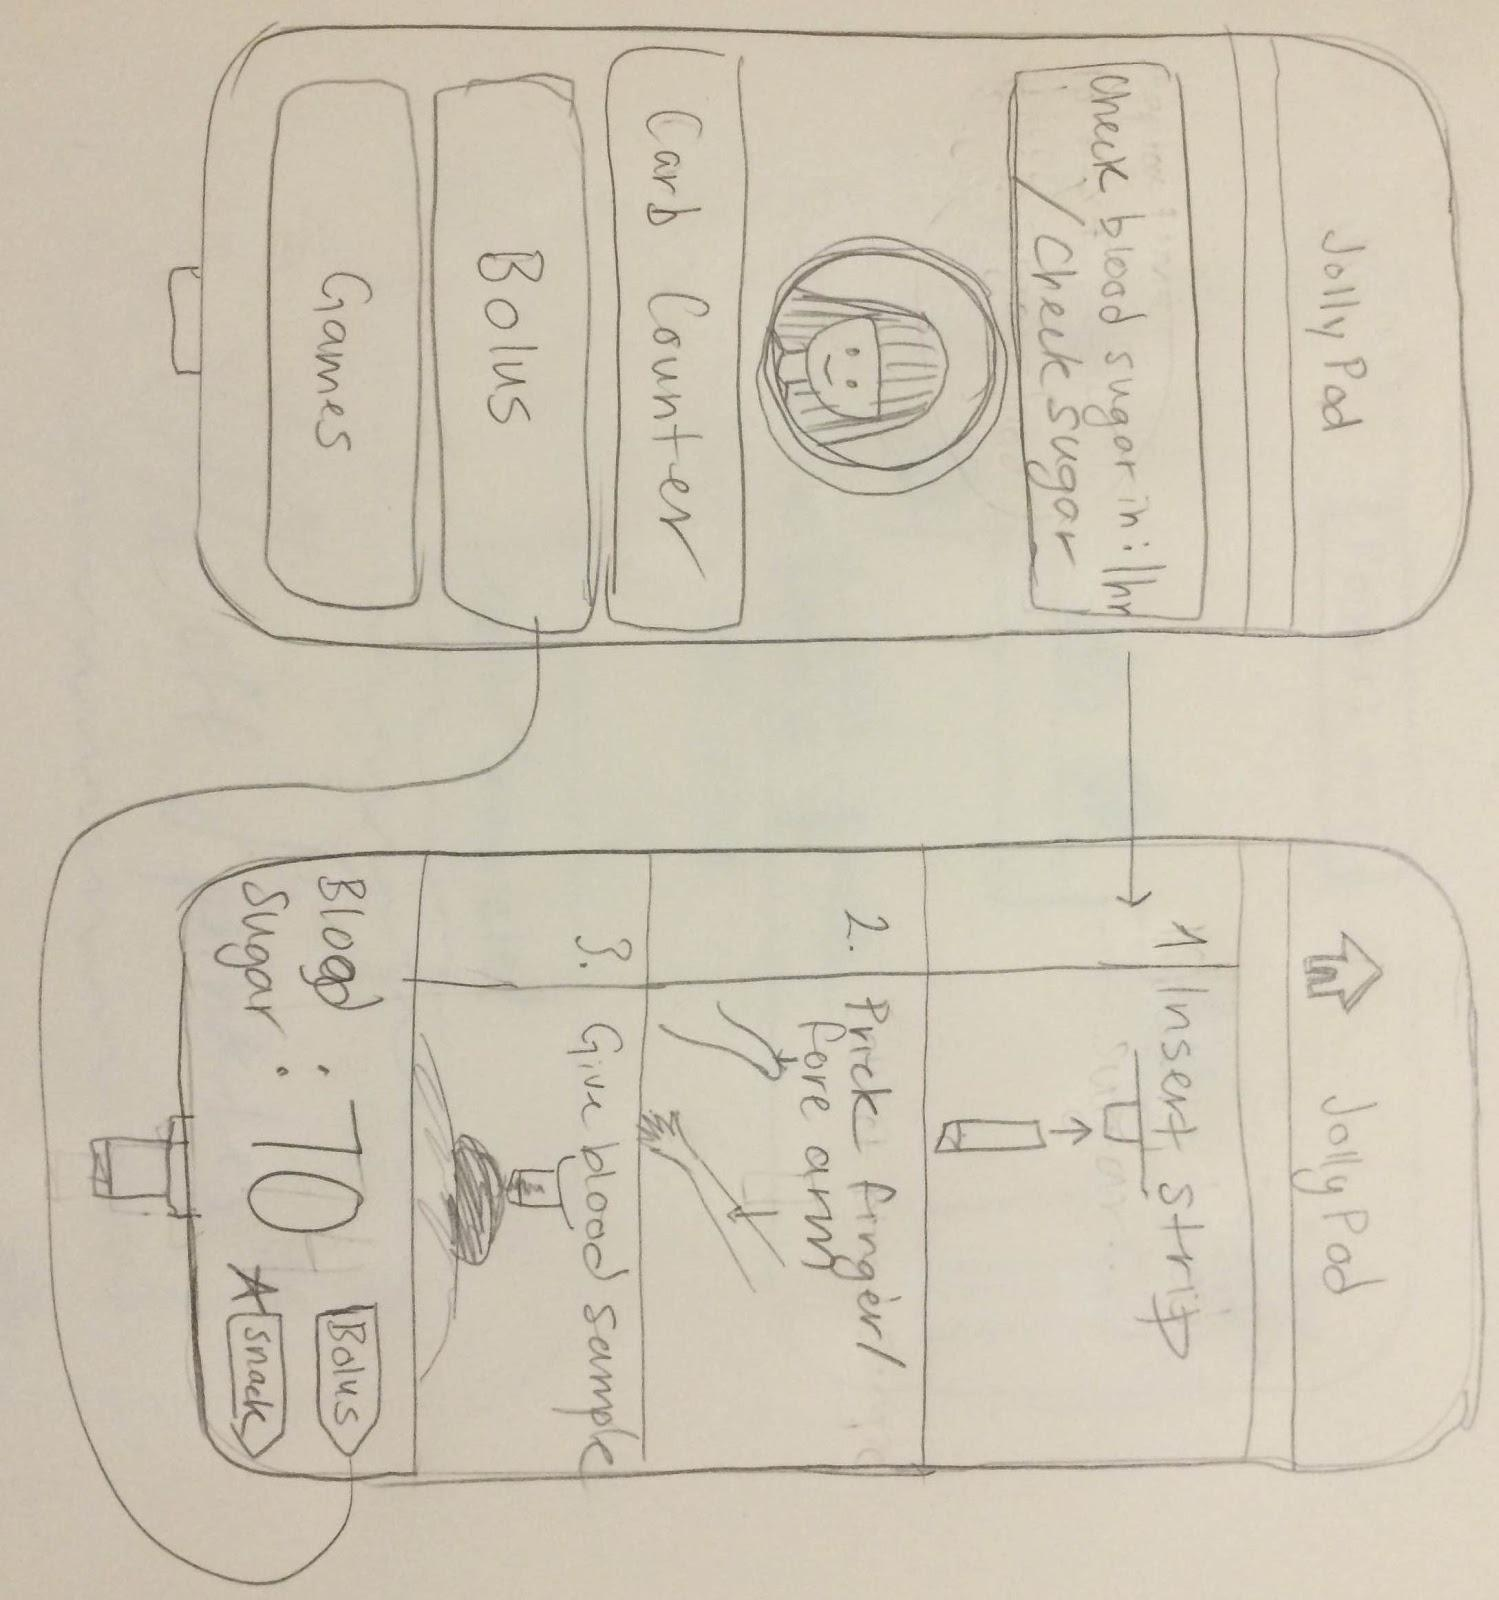 Jolly Pod
Check blood sugar in: 1hr
/ Check sugar
Carb Counter
Bolus
Games
Jolly Pod
1 Insert strip
2. Prick finger/
fore arm
3. Give blood sample
Blood
Sugar : 70
Bolus
Snack